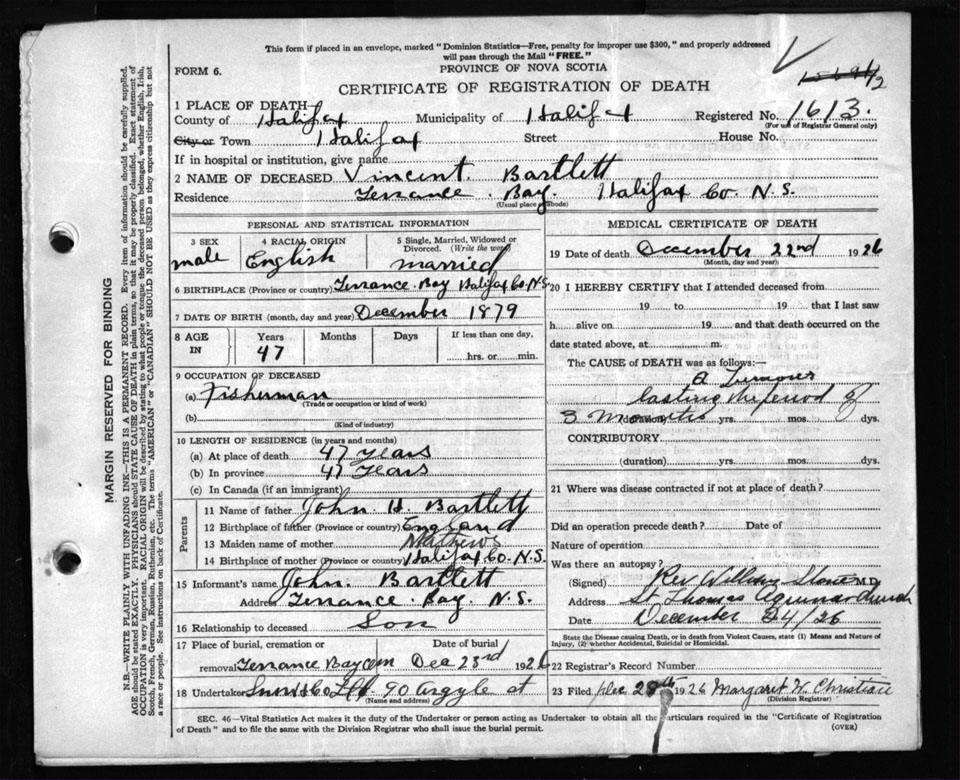 This form if placed in an envelope, marked "Dominion Statistics—Free, penalty for improper use $300," and properly addressed
will pass through the Mail "FREE."
FORM 6.
PROVINCE OF NOVA SCOTIA
CERTIFICATE OF REGISTRATION OF DEATH
1 PLACE OF DEATH
County of Halifax Municipality of Halifax Registered No. 1613.
(For use of Registrar General only)
City or Town Halifax Street House No.
If in hospital or institution, give name
2 NAME OF DECEASED Vincent Bartlett
Residence Terrance Bay. Halifax Co. N.S.
(Usual place of abode)
PERSONAL AND STATISTICAL INFORMATION
3 SEX 4 RACIAL ORIGIN 5 Single, Married, Widowed or Divorced. (Write the word)
male English married
6 BIRTHPLACE (Province or country) Terrance Bay Halifax Co. N.S.
7 DATE OF BIRTH (month, day and year) December 1879
8 AGE IN Years Months Days If less than one day,
47 hrs. or min.
9 OCCUPATION OF DECEASED
(a) Fisherman
(Trade or occupation or kind of work)
(b)
(Kind of industry)
10 LENGTH OF RESIDENCE (in years and months)
(a) At place of death 47 years
(b) In province 47 years
(c) In Canada (if an immigrant)
Parents
11 Name of father John H. Bartlett
12 Birthplace of father (Province or country) England
13 Maiden name of mother Mathews
14 Birthplace of mother (Province or country) Halifax Co. N.S.
15 Informant's name John. Bartlett
Address Terrance. Bay. N.S.
16 Relationship to deceased Son
17 Place of burial, cremation or Date of burial
removal Terrance Bay Cem Dec 23rd 1926
18 Undertaker Snow & Co Ltd. 90 Argyle st
(Name and address)
MEDICAL CERTIFICATE OF DEATH
19 Date of death December 22nd 1926
(Month, day and year)
20 I HEREBY CERTIFY that I attended deceased from
19 to 19 that I last saw
h alive on 19 and that death occurred on
date stated above, at m.
The CAUSE OF DEATH was as follows:
a Tumour
lasting the period of
3 months yrs. mos. dys.
CONTRIBUTORY
(duration) yrs. mos. dys.
21 Where was disease contracted if not at place of death?
Did an operation precede death? Date of
Nature of operation
Was there an autopsy?
(Signed) Rev William M.D.
Address St Thomas Aquinas Church
Date December 24/26
State the Disease causing Death, or in death from Violent Causes, state (1) Means and Nature of Injury, (2) whether Accidental, Suicidal or Homicidal.
22 Registrar's Record Number
23 Filed Dec 28th 1926 Margaret W. Christie
(Division Registrar)
SEC. 46—Vital Statistics Act makes it the duty of the Undertaker or person acting as Undertaker to obtain all the particulars required in the "Certificate of Registration
of Death" and to file the same with the Division Registrar who shall issue the burial permit.
(OVER)
MARGIN RESERVED FOR BINDING
N.B.—WRITE PLAINLY WITH UNFADING INK—THIS IS A PERMANENT RECORD. Every item of information should be carefully supplied.
AGE should be stated EXACTLY. PHYSICIANS should STATE CAUSE OF DEATH in plain terms, so that it may be properly classified. Exact statement of
OCCUPATION is very important. RACIAL ORIGIN will be described by stating to what people or tongue the deceased person belonged, whether English, Irish,
Scotch, French, German, Russian, Ruthenian, etc. The terms "AMERICAN" or "CANADIAN" SHOULD NOT BE USED as they express citizenship but not
a race or people. See instructions on back of Certificate.